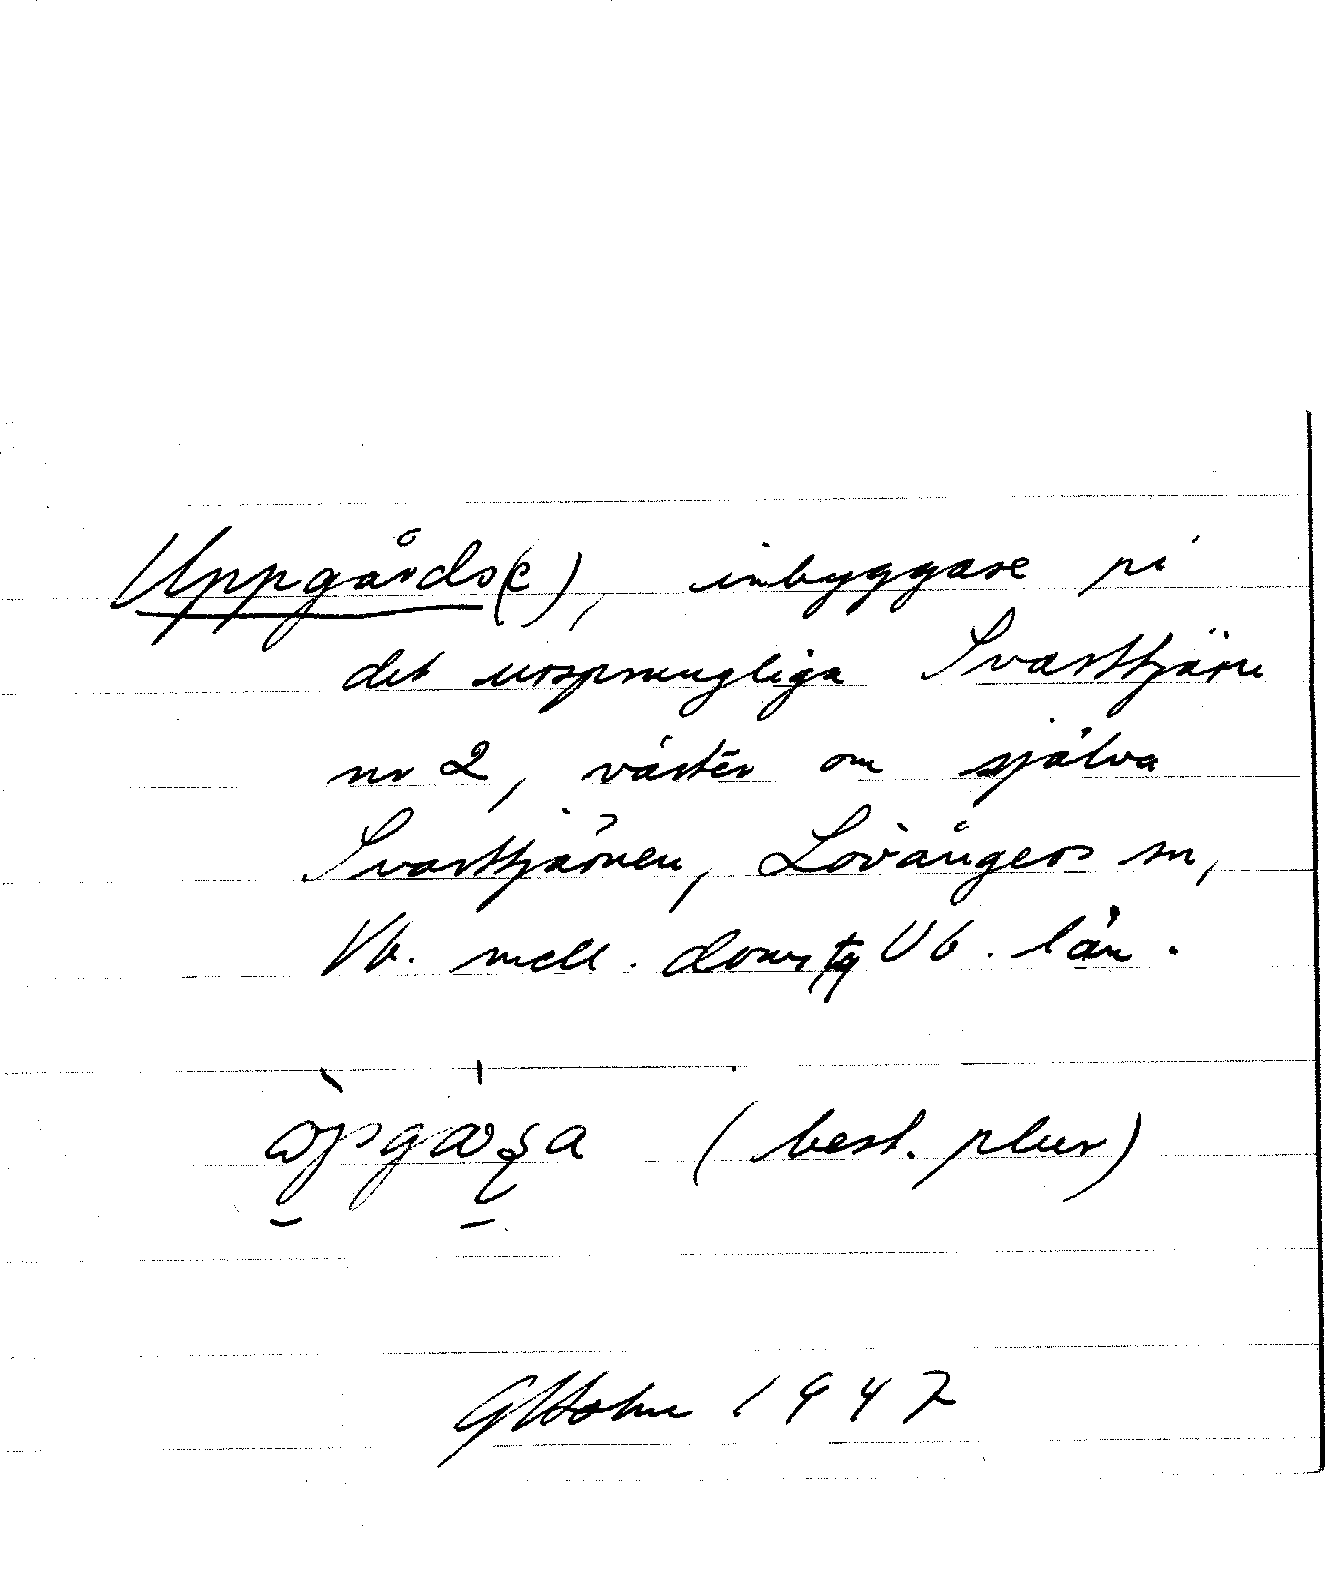 Uppgårds(e), inbyggare på
det ursprungliga Svarttjärn
nr 2, väster om själva
Svarttjärnen, Lövångers sn,
Vb. mell. doms Vb. län.
(best. plur)
1947